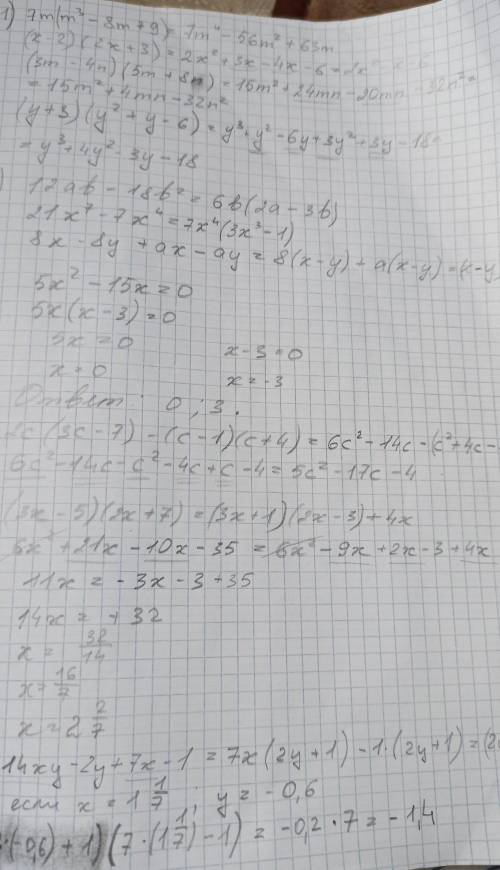 1) 7m(m³ - 8m + 9) = 7m⁴ - 56m² + 63m
(x-2)(2x+3) = 2x² + 3x - 4x - 6 = 2x² - x - 6
(3m - 4n)(5m + 8n) = 15m² + 24mn - 20mn - 32n² =
= 15m² + 4mn - 32n²
(y+3)(y² + y - 6) = y³ + y² - 6y + 3y² + 3y - 18 =
= y³ + 4y² - 3y - 18
) 12ab - 18b² = 6b(2a - 3b)
21x⁷ - 7x⁴ = 7x⁴(3x³ - 1)
8x - 8y + ax - ay = 8(x-y) + a(x-y) = (x-y
5x² - 15x = 0
5x(x-3) = 0
5x = 0 x - 3 = 0
x = 0 x = -3
Ответ: 0; 3.
2c(3c-7) - (c-1)(c+4) = 6c² - 14c - (c² + 4c -
6c² - 14c - c² - 4c + c - 4 = 5c² - 17c - 4
(3x - 5)(2x + 7) = (3x+1)(2x-3) + 4x
6x² + 21x - 10x - 35 = 6x² - 9x + 2x - 3 + 4x
11x = -3x - 3 + 35
14x = +32
x = 32/14
x = 16/7
x = 2 2/7
14xy - 2y + 7x - 1 = 7x(2y+1) - 1·(2y+1) = (2
если x = 1 1/7; y = -0,6
·(-0,6) + 1)(7·(1 1/7) - 1) = -0,2·7 = -1,4